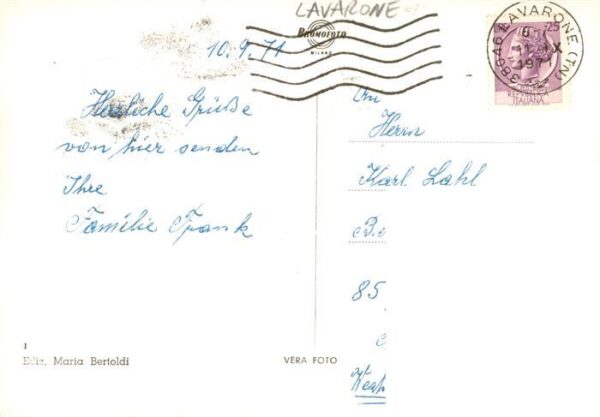 LAVARONE
PROMOFOTO
MILANO
38046 LAVARONE (TN)
1971
25
REPVBBLICA
ITALIANA
10.9.71
Herzliche Grüße
von hier senden
Ihre
Familie Frank
An
Herrn
Karl Lahl
85
I
Ediz. Maria Bertoldi
VERA FOTO